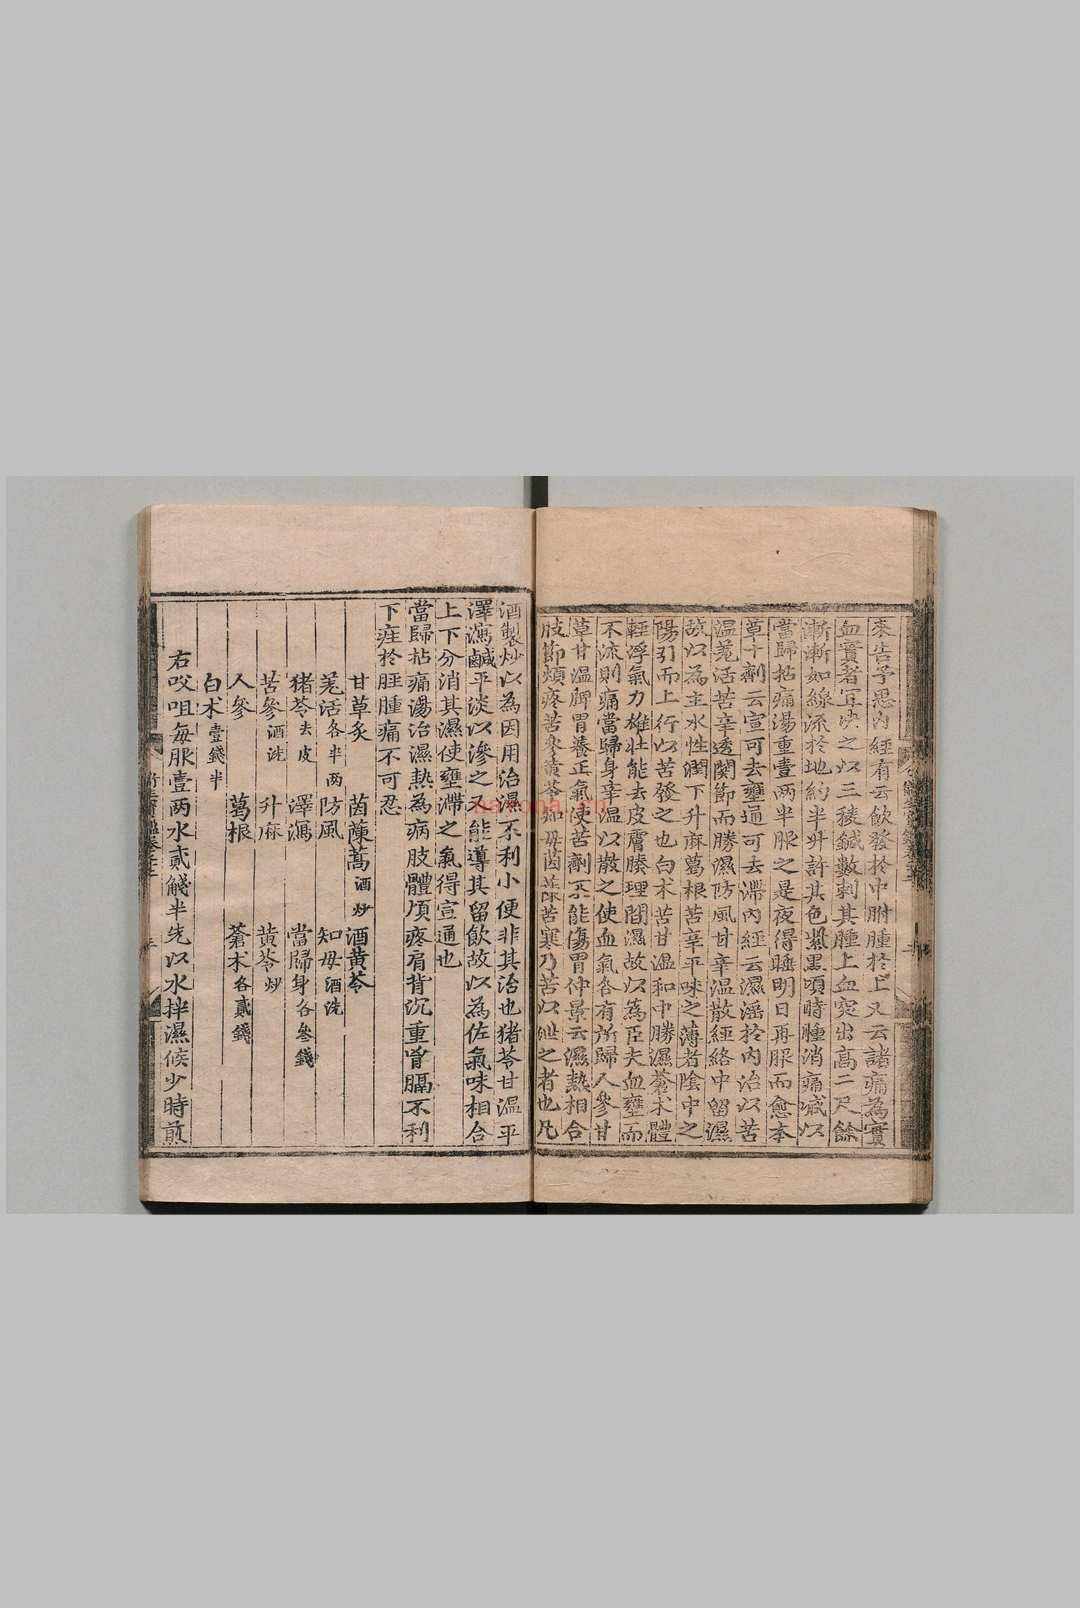 来告予思内經有云飲發扵中胕腫扵上又云諸痛為實
血實者宜决之以三稜鍼數刺其腫上血突出高二尺餘
漸漸如線流扵地約半升許其色紫黒頃時腫消痛減以
當歸拈痛湯重壹两半服之是夜得睡明日再服而愈本
草十劑云宣可去壅通可去滯内經云濕淫扵内治以苦
温羗活苦辛透関節而勝濕防風甘辛温散經絡中留濕
故以為主水性潤下升麻葛根苦辛平味之薄者陰中之
陽引而上行以苦發之也白术苦甘温和中勝濕蒼术體
輕浮氣力雄壮能去皮膚腠理間濕故以為臣夫血壅而
不流則痛當歸身辛温以散之使血氣各有所歸人參甘
草甘温脾胃養正氣使苦劑不能傷胃仲景云濕熱相合
肢節煩疼苦參黄芩知母茵蔯苦寒乃苦以泄之者也凡
酒製炒以為因用治濕不利小便非其治也猪苓甘温平
澤瀉鹹平淡以滲之又能導其留飲故以為佐氣味相合
上下分消其濕使壅滯之氣得宣通也
當歸拈痛湯治濕熱為病肢體煩疼肩背沉重胷膈不利
下疰扵脛腫痛不可忍
甘草炙 茵蔯蒿酒炒 酒黄芩
羗活各半两 防風 知母酒洗
猪苓去皮 澤瀉 當歸身各叁錢
苦參酒洗 升麻 黄芩炒
人參 葛根 蒼术各貳錢
白术壹錢半
右㕮咀每服壹两水貳觥半先以水拌濕候少時煎
naxona.cn